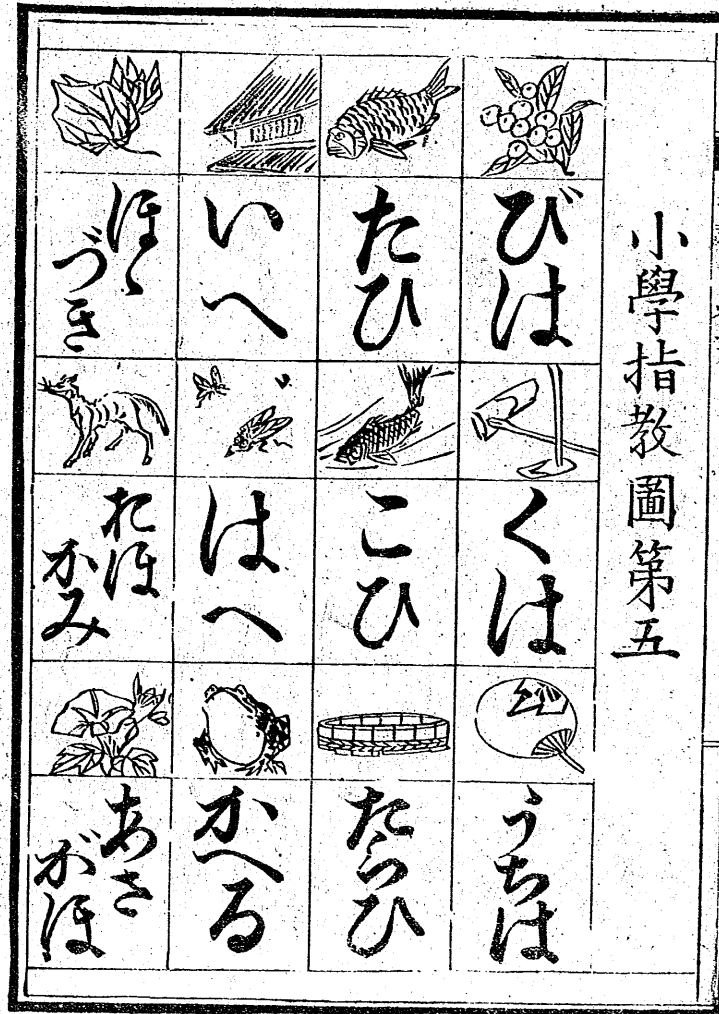 小學指教圖第五
びは
くは
うちは
たひ
こひ
たらひ
いへ
はへ
かへる
ほゝ
づき
おほ
かみ
あさ
がほ